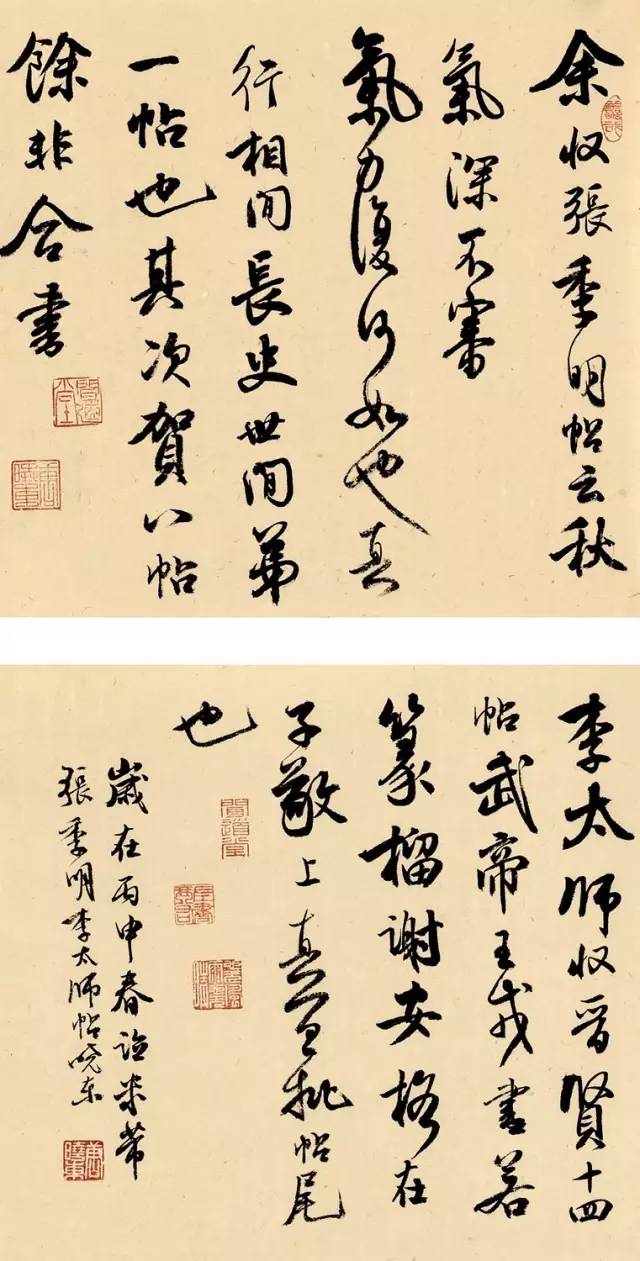 余收張季明帖云秋
氣深不審
氣力復何如也真
行相間長史世間第
一帖也其次賀八帖
餘非合書
李太師收晉賢十四
帖武帝王戎書若
篆籀謝安格在
子敬上真宜批帖尾
也
歲在丙申春臨米芾
張季明李太師帖曉東